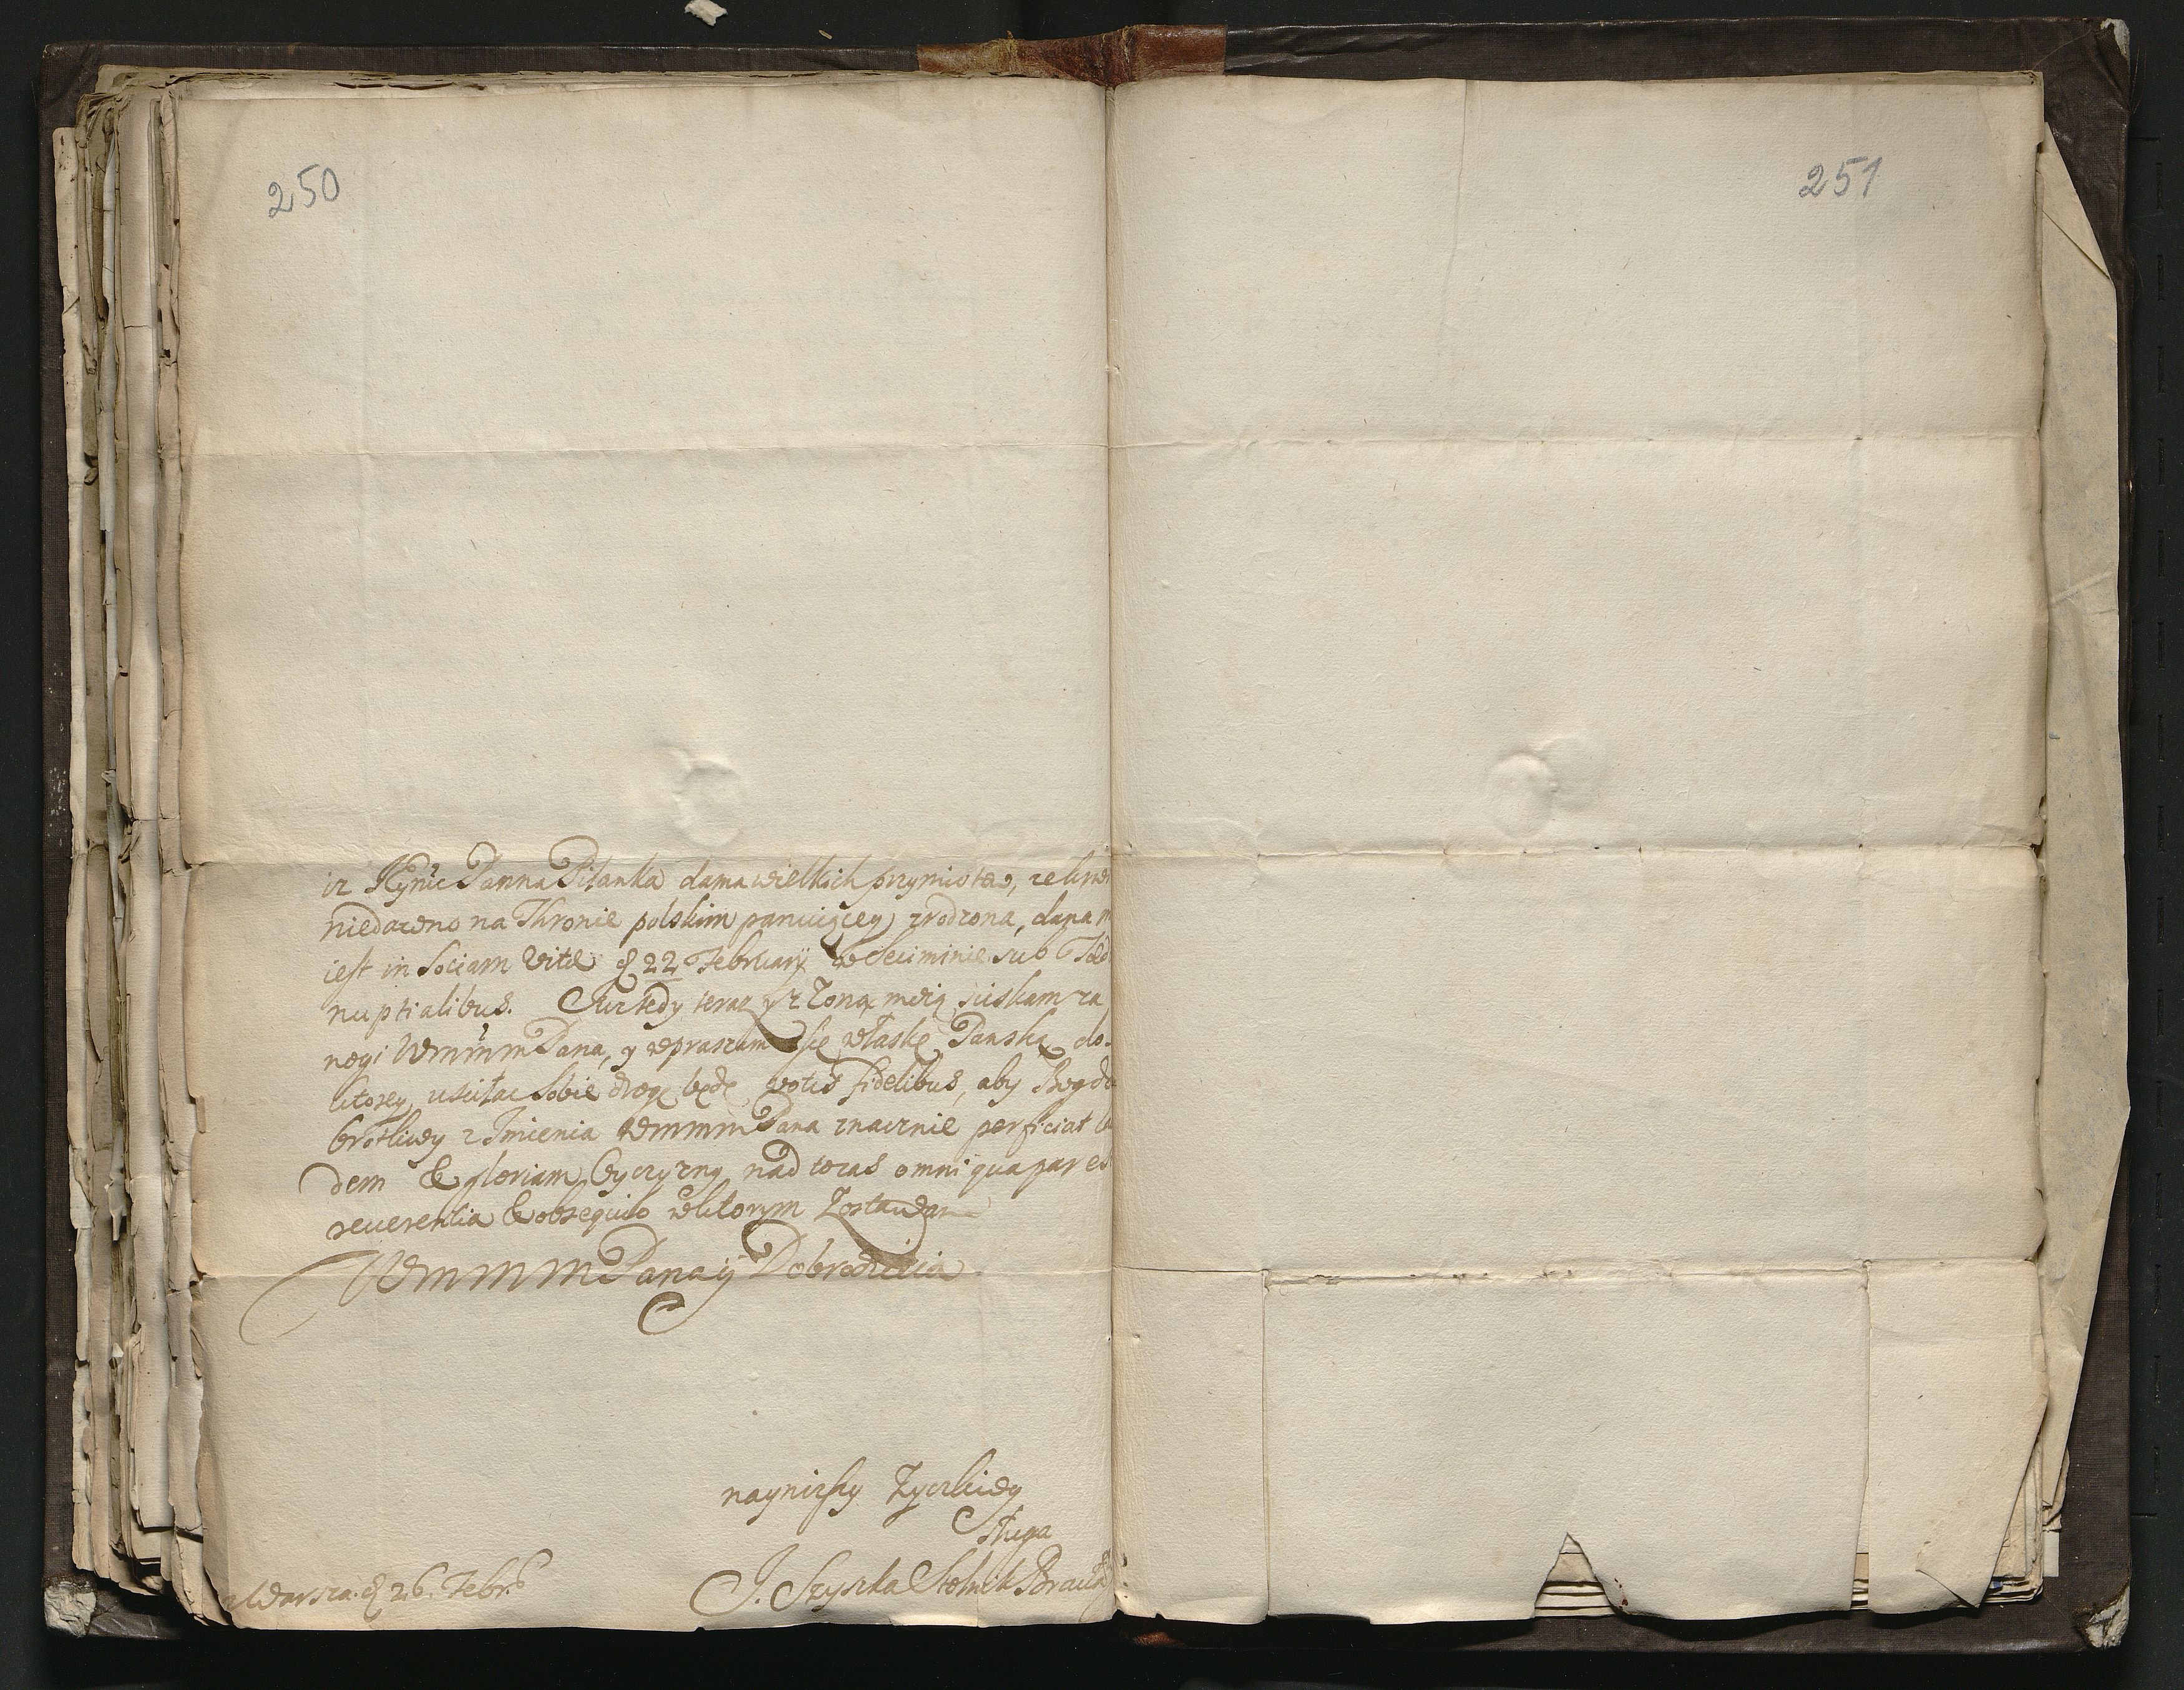 250
251
iz Jeymć Panna Pitanka dama wielkich przymiotow, ze krwi
niedawno na Thronie polskim panuiącey zrodzona, dana m
iest in Sociam vitæ d 22 February w Seciminie sub Tæd
nuptialibus. Jusz tedy teraz y z Zoną moią sciskam za
nogi WmmmPana, y wpraszam się w łaskę Panską do
ktorey uściłac sobie drogę będę votis fidelibus, aby Bog do
brotliwy z Imienia WmmmPana znacznie perficiat
dem & gloriam Oyczyzny nad to zas omni qua par es
reverentia & obsequio w ktorym Zostawam
WmmmPana y Dobrodzieia
naynizszy Zyczliwy
sługa
J. Szyszka Stolnik Bracła
z Warsza. d 26. Febr.